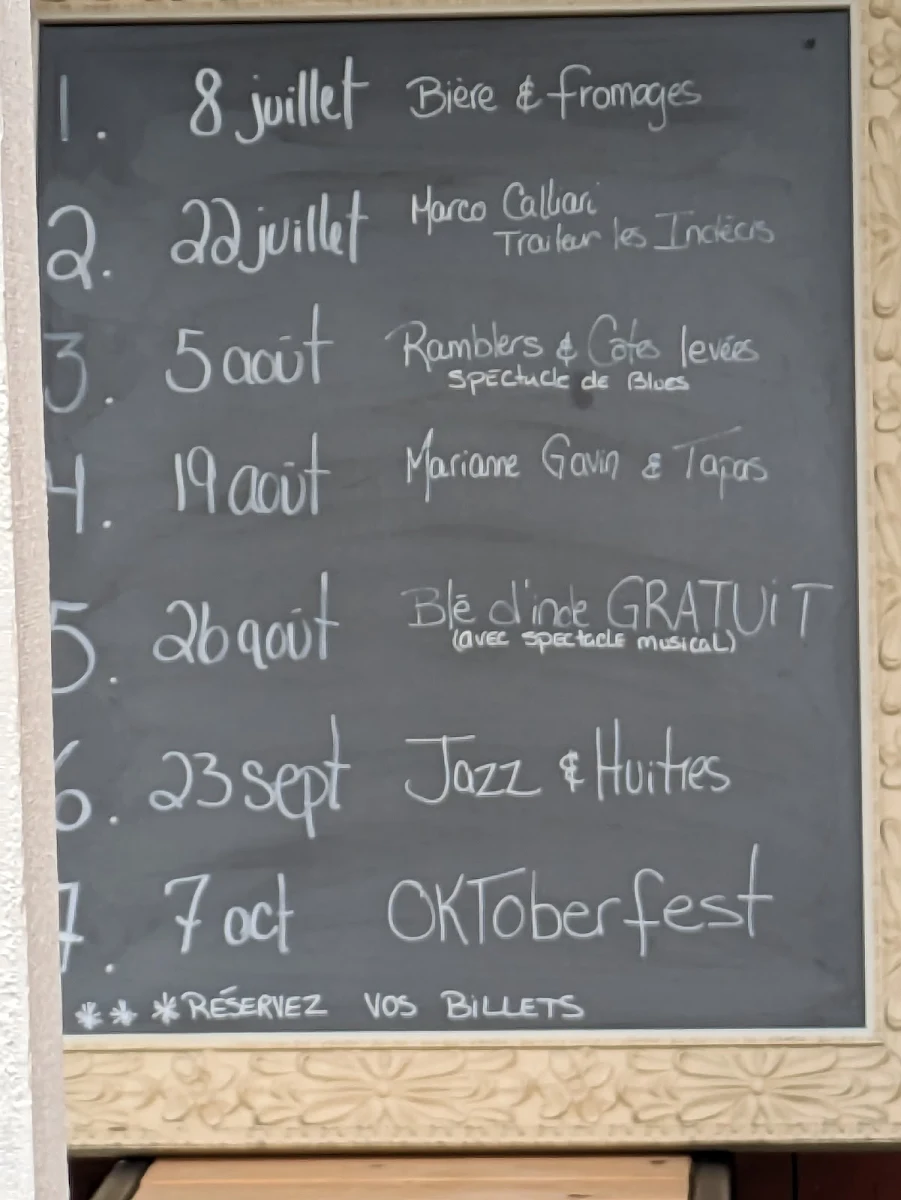 1. 8 juillet Bière & fromages
2. 22 juillet Marco Calliari
Traiteur les Indécis
3. 5 août Ramblers & Côtes levées
SPECtacle de Blues
4. 19 août Marianne Gavin & Tapas
5. 26 août Blé d'inde GRATUiT
(avec SPECtacle musical)
6. 23 sept Jazz & Huitres
7. 7 oct OKToberfest
***RÉSERVEZ VOS BiLLETS